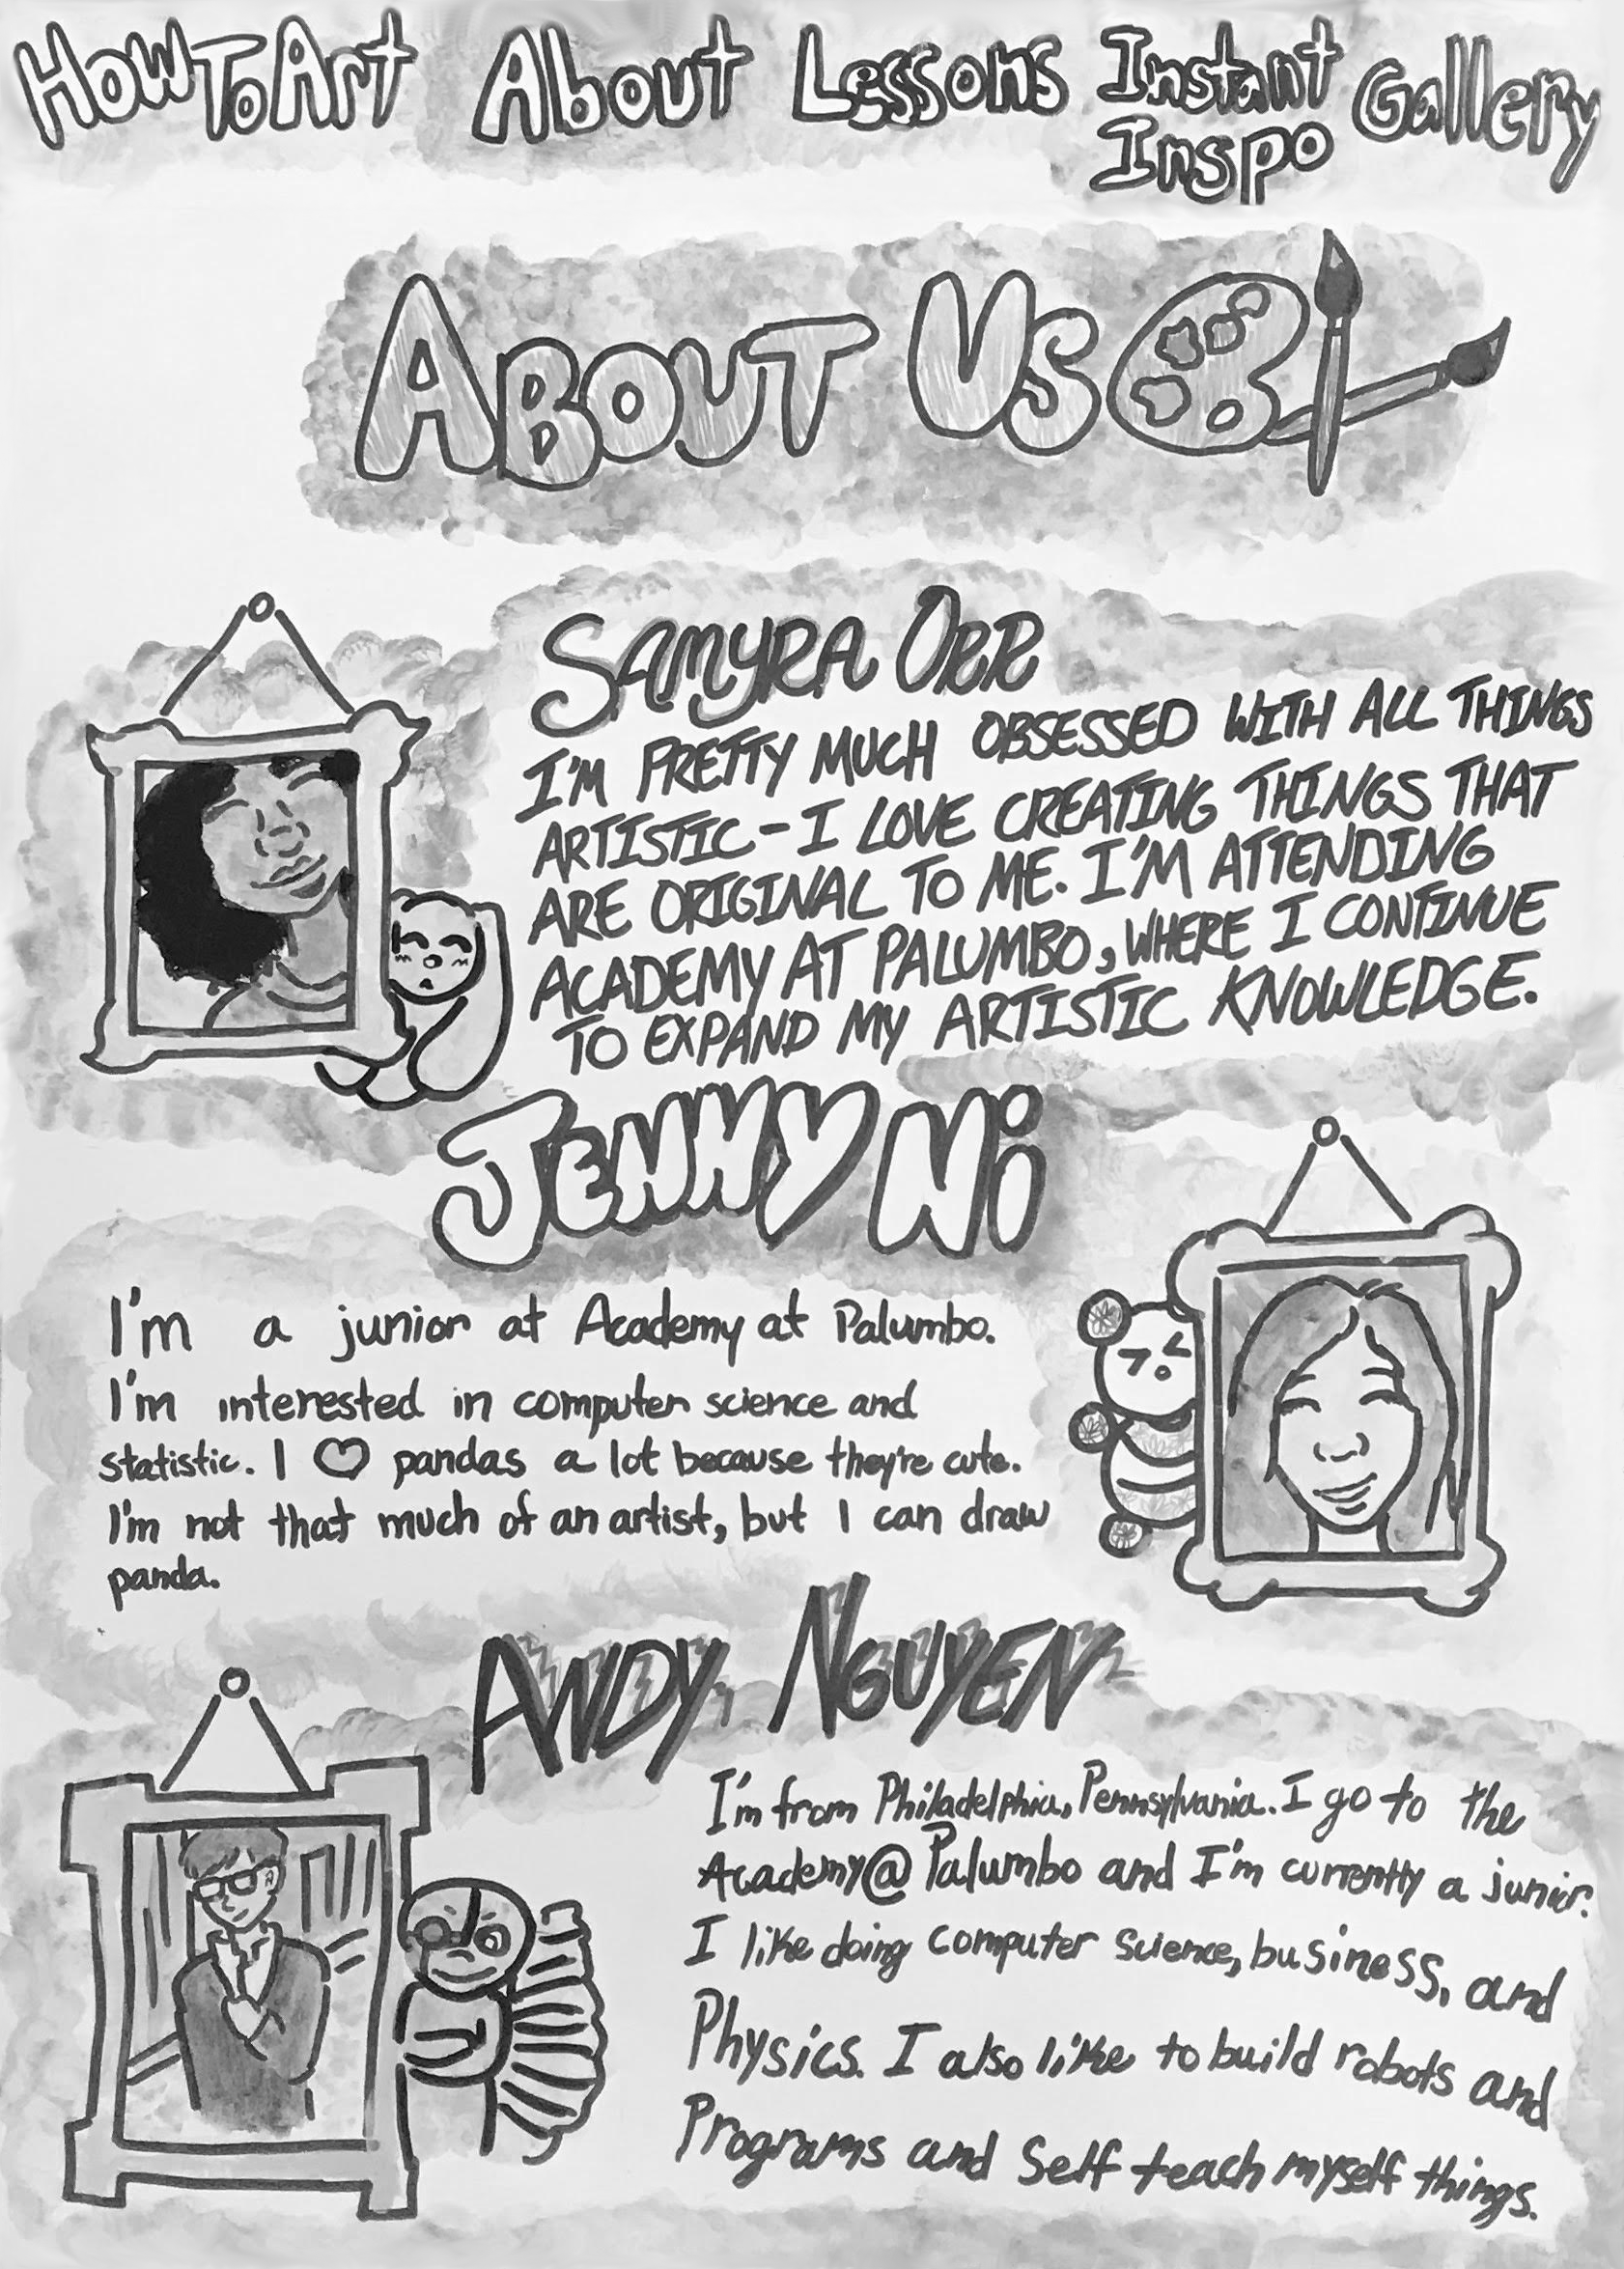 HowToArt About Lessons Instant Inspo Gallery
About Us
Samyra Orr
I'm pretty much obsessed with all things
artistic - I love creating things that
are original to me. I'm attending
Academy at Palumbo, where I continue
to expand my artistic knowledge.
Jenny Ni
I'm a junior at Academy at Palumbo.
I'm interested in computer science and
statistic. I ♡ pandas a lot because they're cute.
I'm not that much of an artist, but I can draw
panda.
Andy Nguyen
I'm from Philadelphia, Pennsylvania. I go to the
Academy@Palumbo and I'm currently a junior.
I like doing computer science, business, and
Physics. I also like to build robots and
Programs and Self teach myself things.